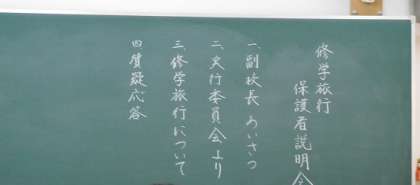 修学旅行
保護者説明会
一、副校長 あいさつ
二、実行委員会より
三、修学旅行について
四、質疑応答